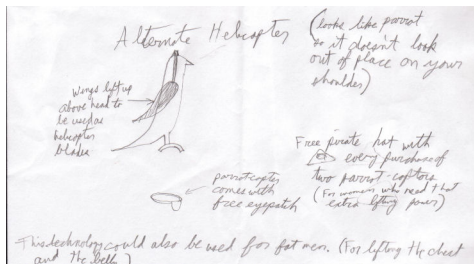 Alternate Helicopter
(looks like parrot
so it doesn't look
out of place on your
shoulder)
Wings lift up
above head to
be used as
helicopter
blades
Free pirate hat with
every purchase of
two parrot-coptors
(For women who need that
extra lifting power)
parrotcopter
comes with
free eyepatch
This technology could also be used for fat men. (For lifting the chest
and the belly)